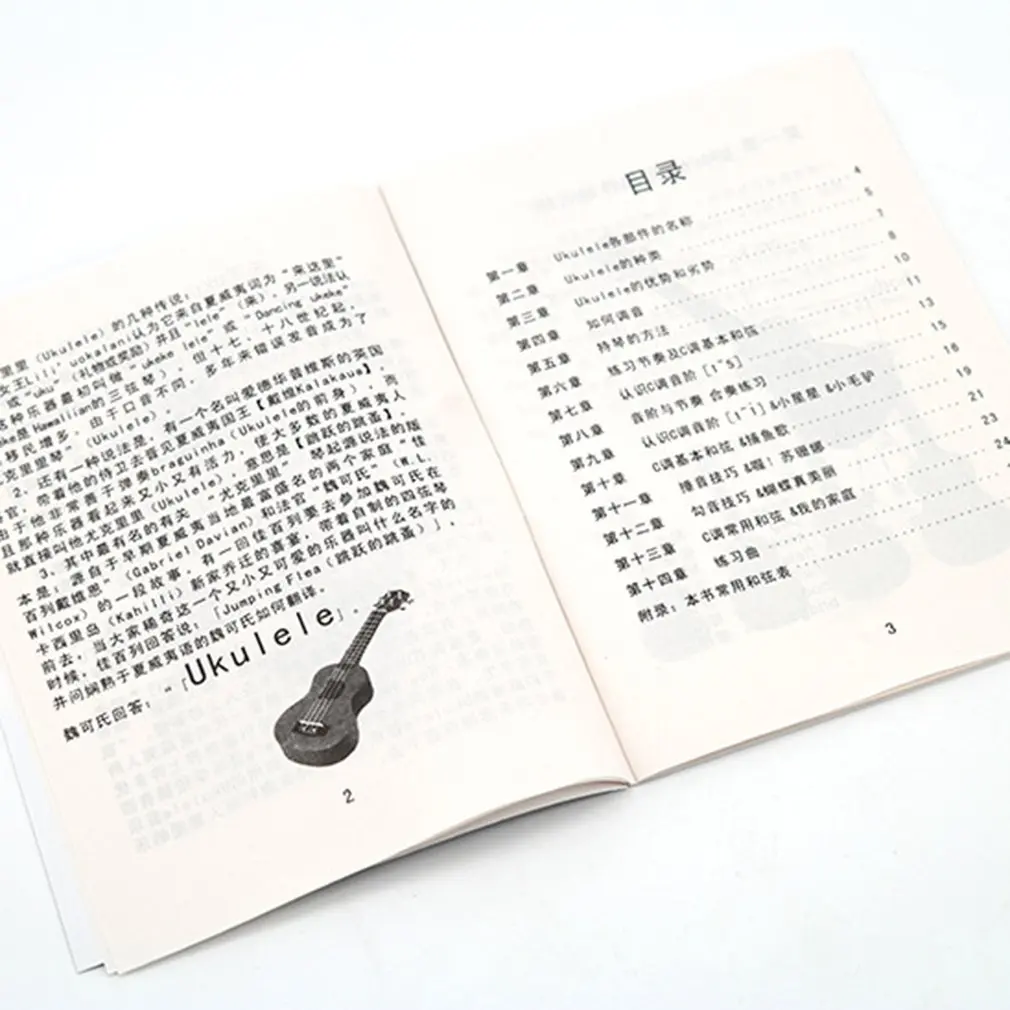 里里（Ukulele）的几种传说：
女王Lili' uokalani认为它来自夏威夷词为“来这里”
或“uku”（礼物或奖励）并且“lele”（来），另一说法认
这种乐器最初叫做“ukeke lele”或“Dancing ukeke”
ke是Hawaiian的三弦琴），但十七，十八世纪起，
移民增多，由于口音不同，多年来错误发音成为了
克里里琴”（Ukulele）。
2、还有一种说法是，有一个名叫爱德华普维斯的英国
官，带着他的侍卫去晋见夏威夷国王【戴维Kalakaua】，
由于他非常善于弹奏braguinha（Ukulele的前身），而
且那种乐器看起来又小又有活力，使大多数的夏威夷人
就直接叫他尤克里里（Ukulele），意思是【跳跃的跳蚤】。
3、其中最有名的有关“尤克里里”琴起源说法的版
本是，源自于早期夏威夷当地最富盛名的两个家庭“佳
百列戴维恩”（Gabriel Davian）和法官“魏可氏”（W.L.
Wilcox）的一段故事，有一回佳百列要去参加魏可氏在
卡西里岛（Kahilli）新家乔迁的喜宴，带着自制的四弦琴
前去，当大家稀奇这一个又小又可爱的乐器叫什么名字的
时候，佳百列回答说：「Jumping Flea（跳跃的跳蚤）」，
并问娴熟于夏威夷语的魏可氏如何翻译。
魏可氏回答：“「Ukulele」.
2
目录
第一章 Ukulele各部件的名称 4
第二章 Ukulele的种类 5
第三章 Ukulele的优势和劣势 7
第四章 如何调音 8
第五章 持琴的方法 10
第六章 练习节奏及C调基本和弦 11
第七章 认识C调音阶 [1~5] 13
第八章 音阶与节奏 合奏练习 15
第九章 认识C调音阶 [1~i] &小星星 &小毛驴 16
第十章 C调基本和弦 &捕鱼歌 19
第十一章 捶音技巧 &喔！苏珊娜 21
第十二章 勾音技巧 &蝴蝶真美丽 23
第十三章 C调常用和弦 &我的家庭 24
第十四章 练习曲
附录：本书常用和弦表
3